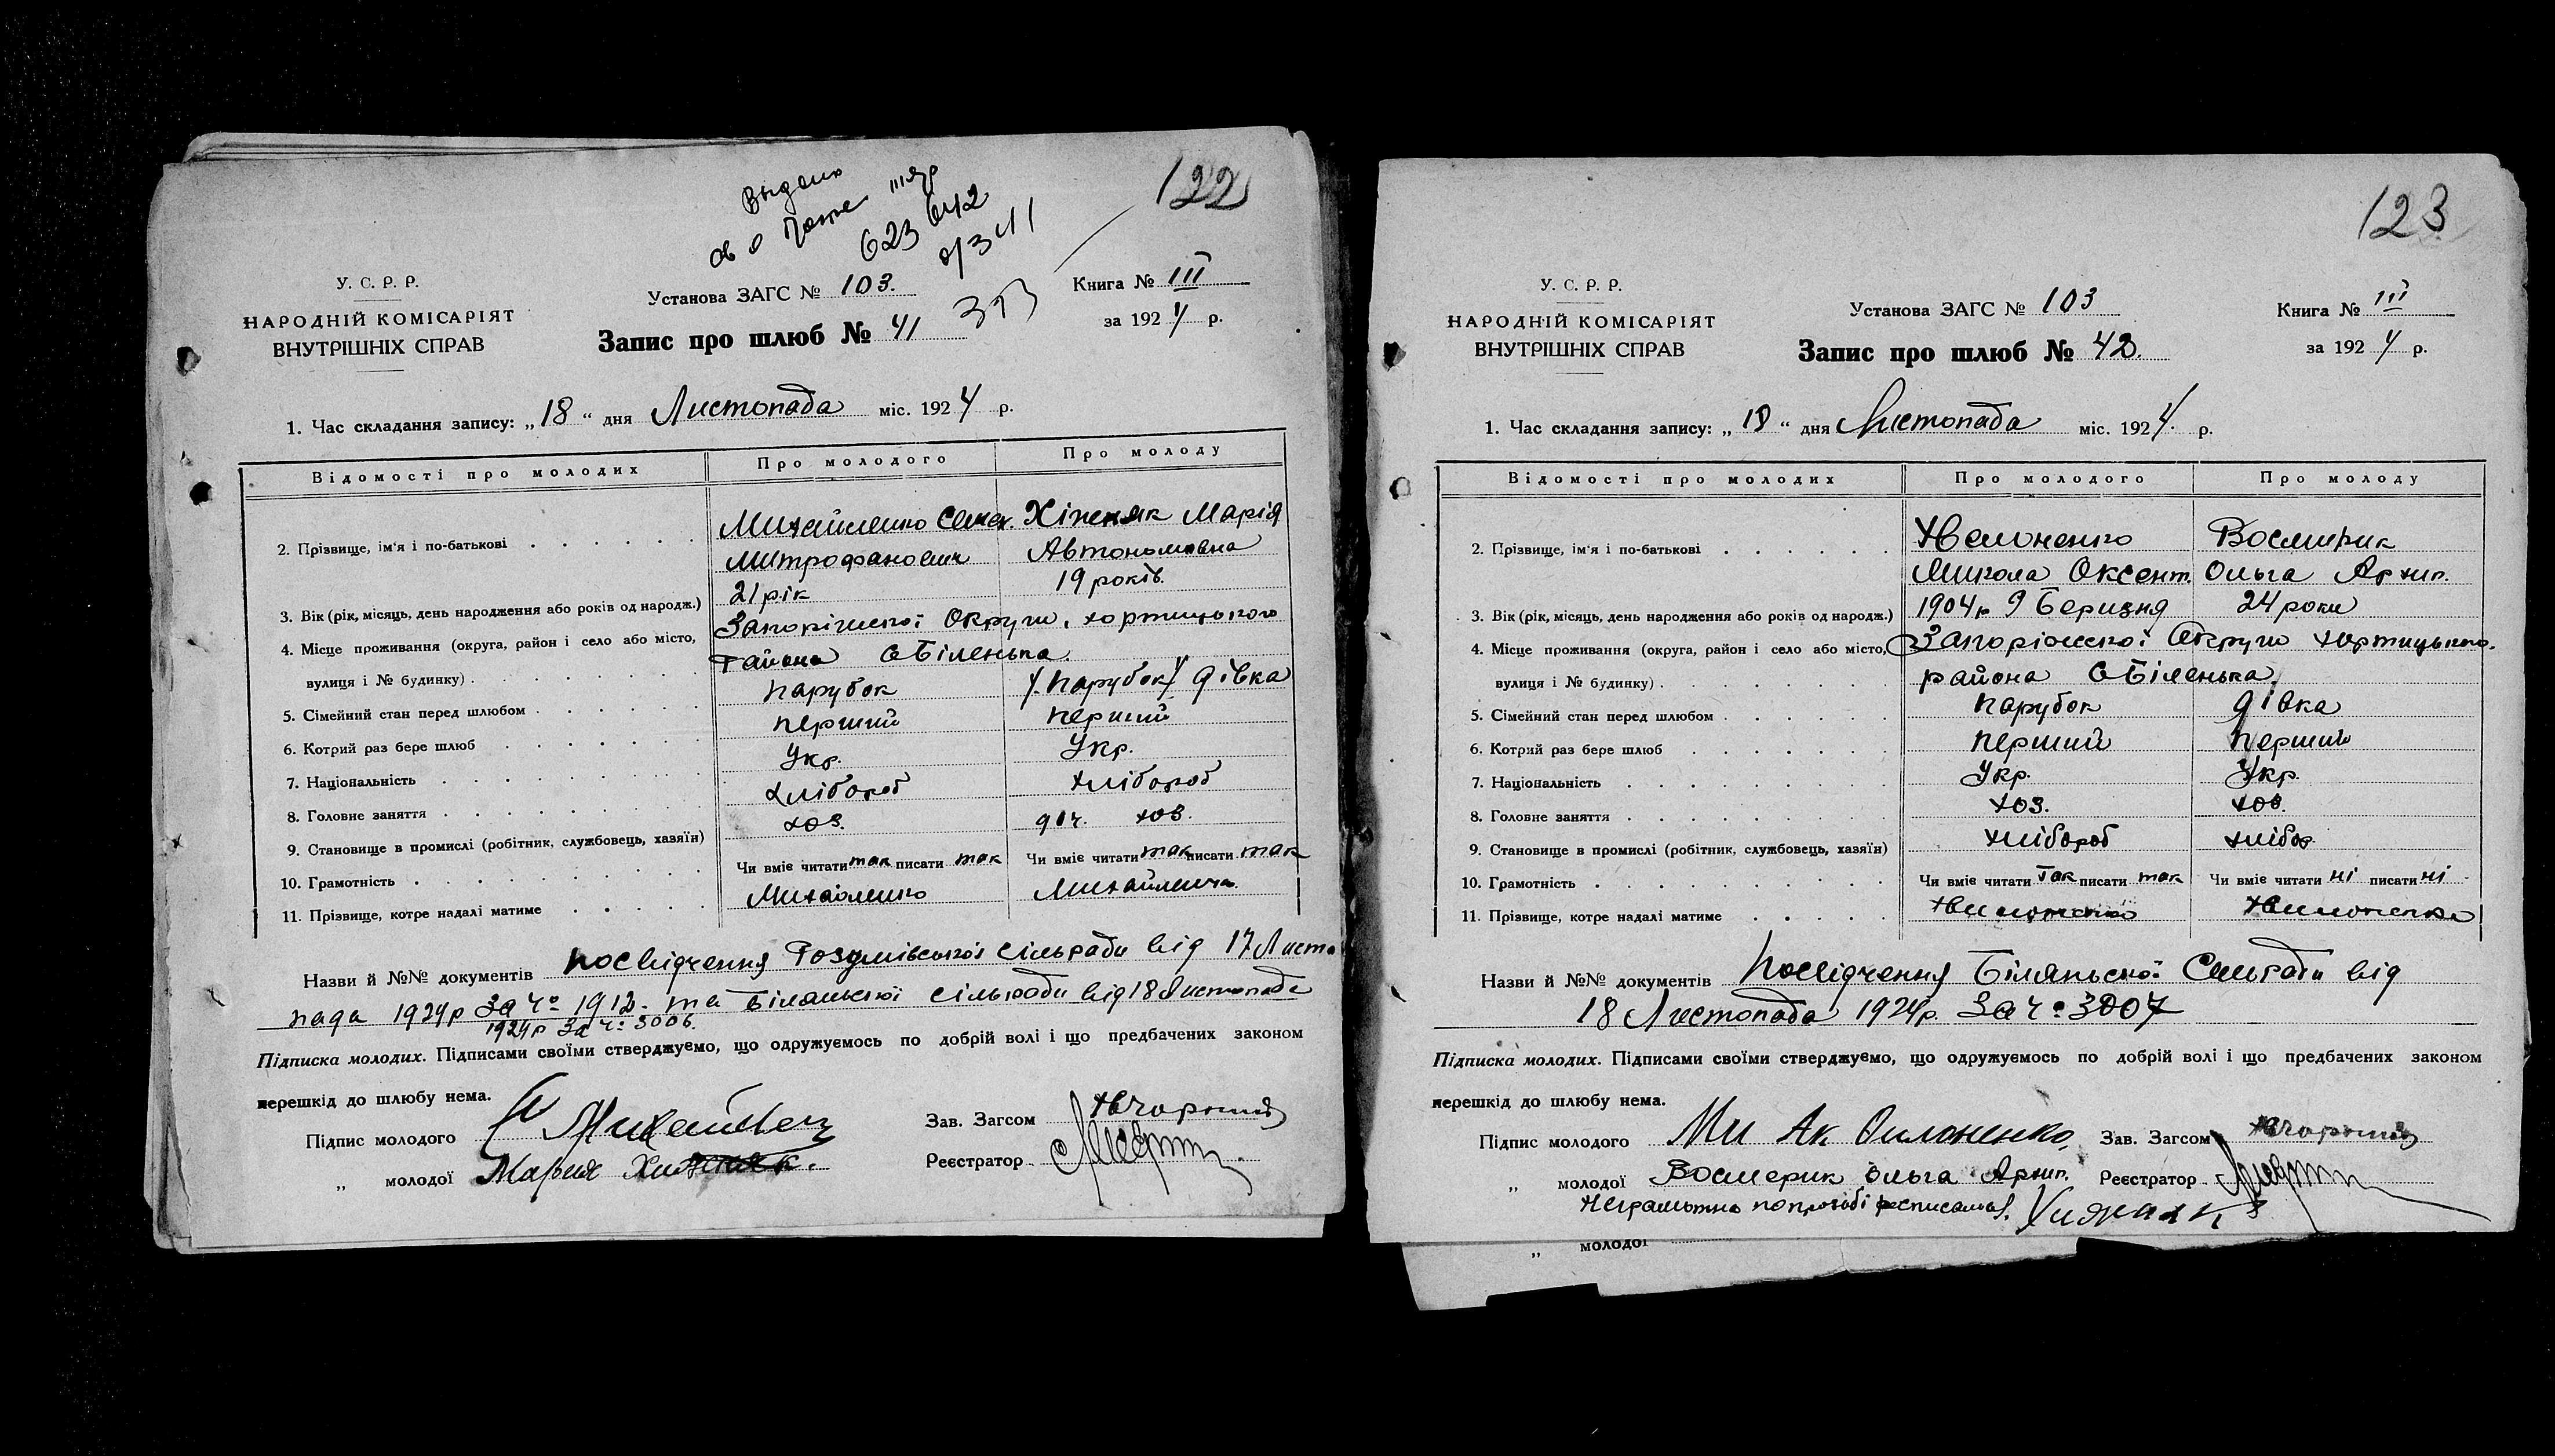 122
Выдано
У. С. Р. Р.
НАРОДНІЙ КОМІСАРІЯТ
ВНУТРІШНІХ СПРАВ
Установа ЗАГС № 103.
Запис про шлюб № 41
Книга № III
за 1924 р.
1. Час складання запису: „18“ дня Листопада міс. 1924 р.
Відомості про молодих Про молодого Про молоду
2. Прізвище, ім'я і по-батькові Михайленко Семен. Хіжняк Марія
Митрофанович Автономовна
3. Вік (рік, місяць, день народження або років од народж.) 21 рік 19 років.
4. Місце проживання (округа, район і село або місто, Запоріжської Округи, хортицького
вулиця і № будинку) района с Біленька.
5. Сімейний стан перед шлюбом парубок /парубок/ дівка
6. Котрий раз бере шлюб перший перший
7. Національність Укр. Укр.
8. Головне заняття хлібороб хлібороб
9. Становище в промислі (робітник, службовець, хазяїн) хоз. доч. хоз.
10. Грамотність Чи вміє читати так писати так Чи вміє читати так писати так
11. Прізвище, котре надалі матиме Михайленко
Назви й №№ документів посвідчення Розумівської сільради від 17 Листо
пада 1924р за ч: 1912. та Біляньської сільради від 18 Листопада
1924р за ч: 3006.
Підписка молодих. Підписами своїми стверджуємо, що одружуємось по добрій волі і що предбачених законом
перешкід до шлюбу нема.
Підпис молодого Зав. Загсом
„ молодої Мария Реєстратор
123
У. С. Р. Р.
НАРОДНІЙ КОМІСАРІЯТ
ВНУТРІШНІХ СПРАВ
Установа ЗАГС № 103
Запис про шлюб № 42.
Книга № III
за 1924 р.
1. Час складання запису: „18“ дня Листопада міс. 1924. р.
Відомості про молодих Про молодого Про молоду
2. Прізвище, ім'я і по-батькові Восмерик
Микола Оксент. Ольга Архип.
3. Вік (рік, місяць, день народження або років од народж.) 1904р 9 Березня 24 роки
4. Місце проживання (округа, район і село або місто, Запоріжської Округи хортицького.
вулиця і № будинку) района с Біленька.
5. Сімейний стан перед шлюбом парубок дівка
6. Котрий раз бере шлюб перший перший
7. Національність Укр. Укр.
8. Головне заняття хоз. хоз.
9. Становище в промислі (робітник, службовець, хазяїн) хлібороб хлібор.
10. Грамотність Чи вміє читати так писати так Чи вміє читати ні писати ні
11. Прізвище, котре надалі матиме
Назви й №№ документів посвідчення Біляньської Сельради від
18 Листопада 1924р. за ч: 3007
Підписка молодих. Підписами своїми стверджуємо, що одружуємось по добрій волі і що предбачених законом
перешкід до шлюбу нема.
Підпис молодого Зав. Загсом
„ молодої Восмерик Ольга Архип. Реєстратор
Неграмотна по просьбі росписался.
„ молодої